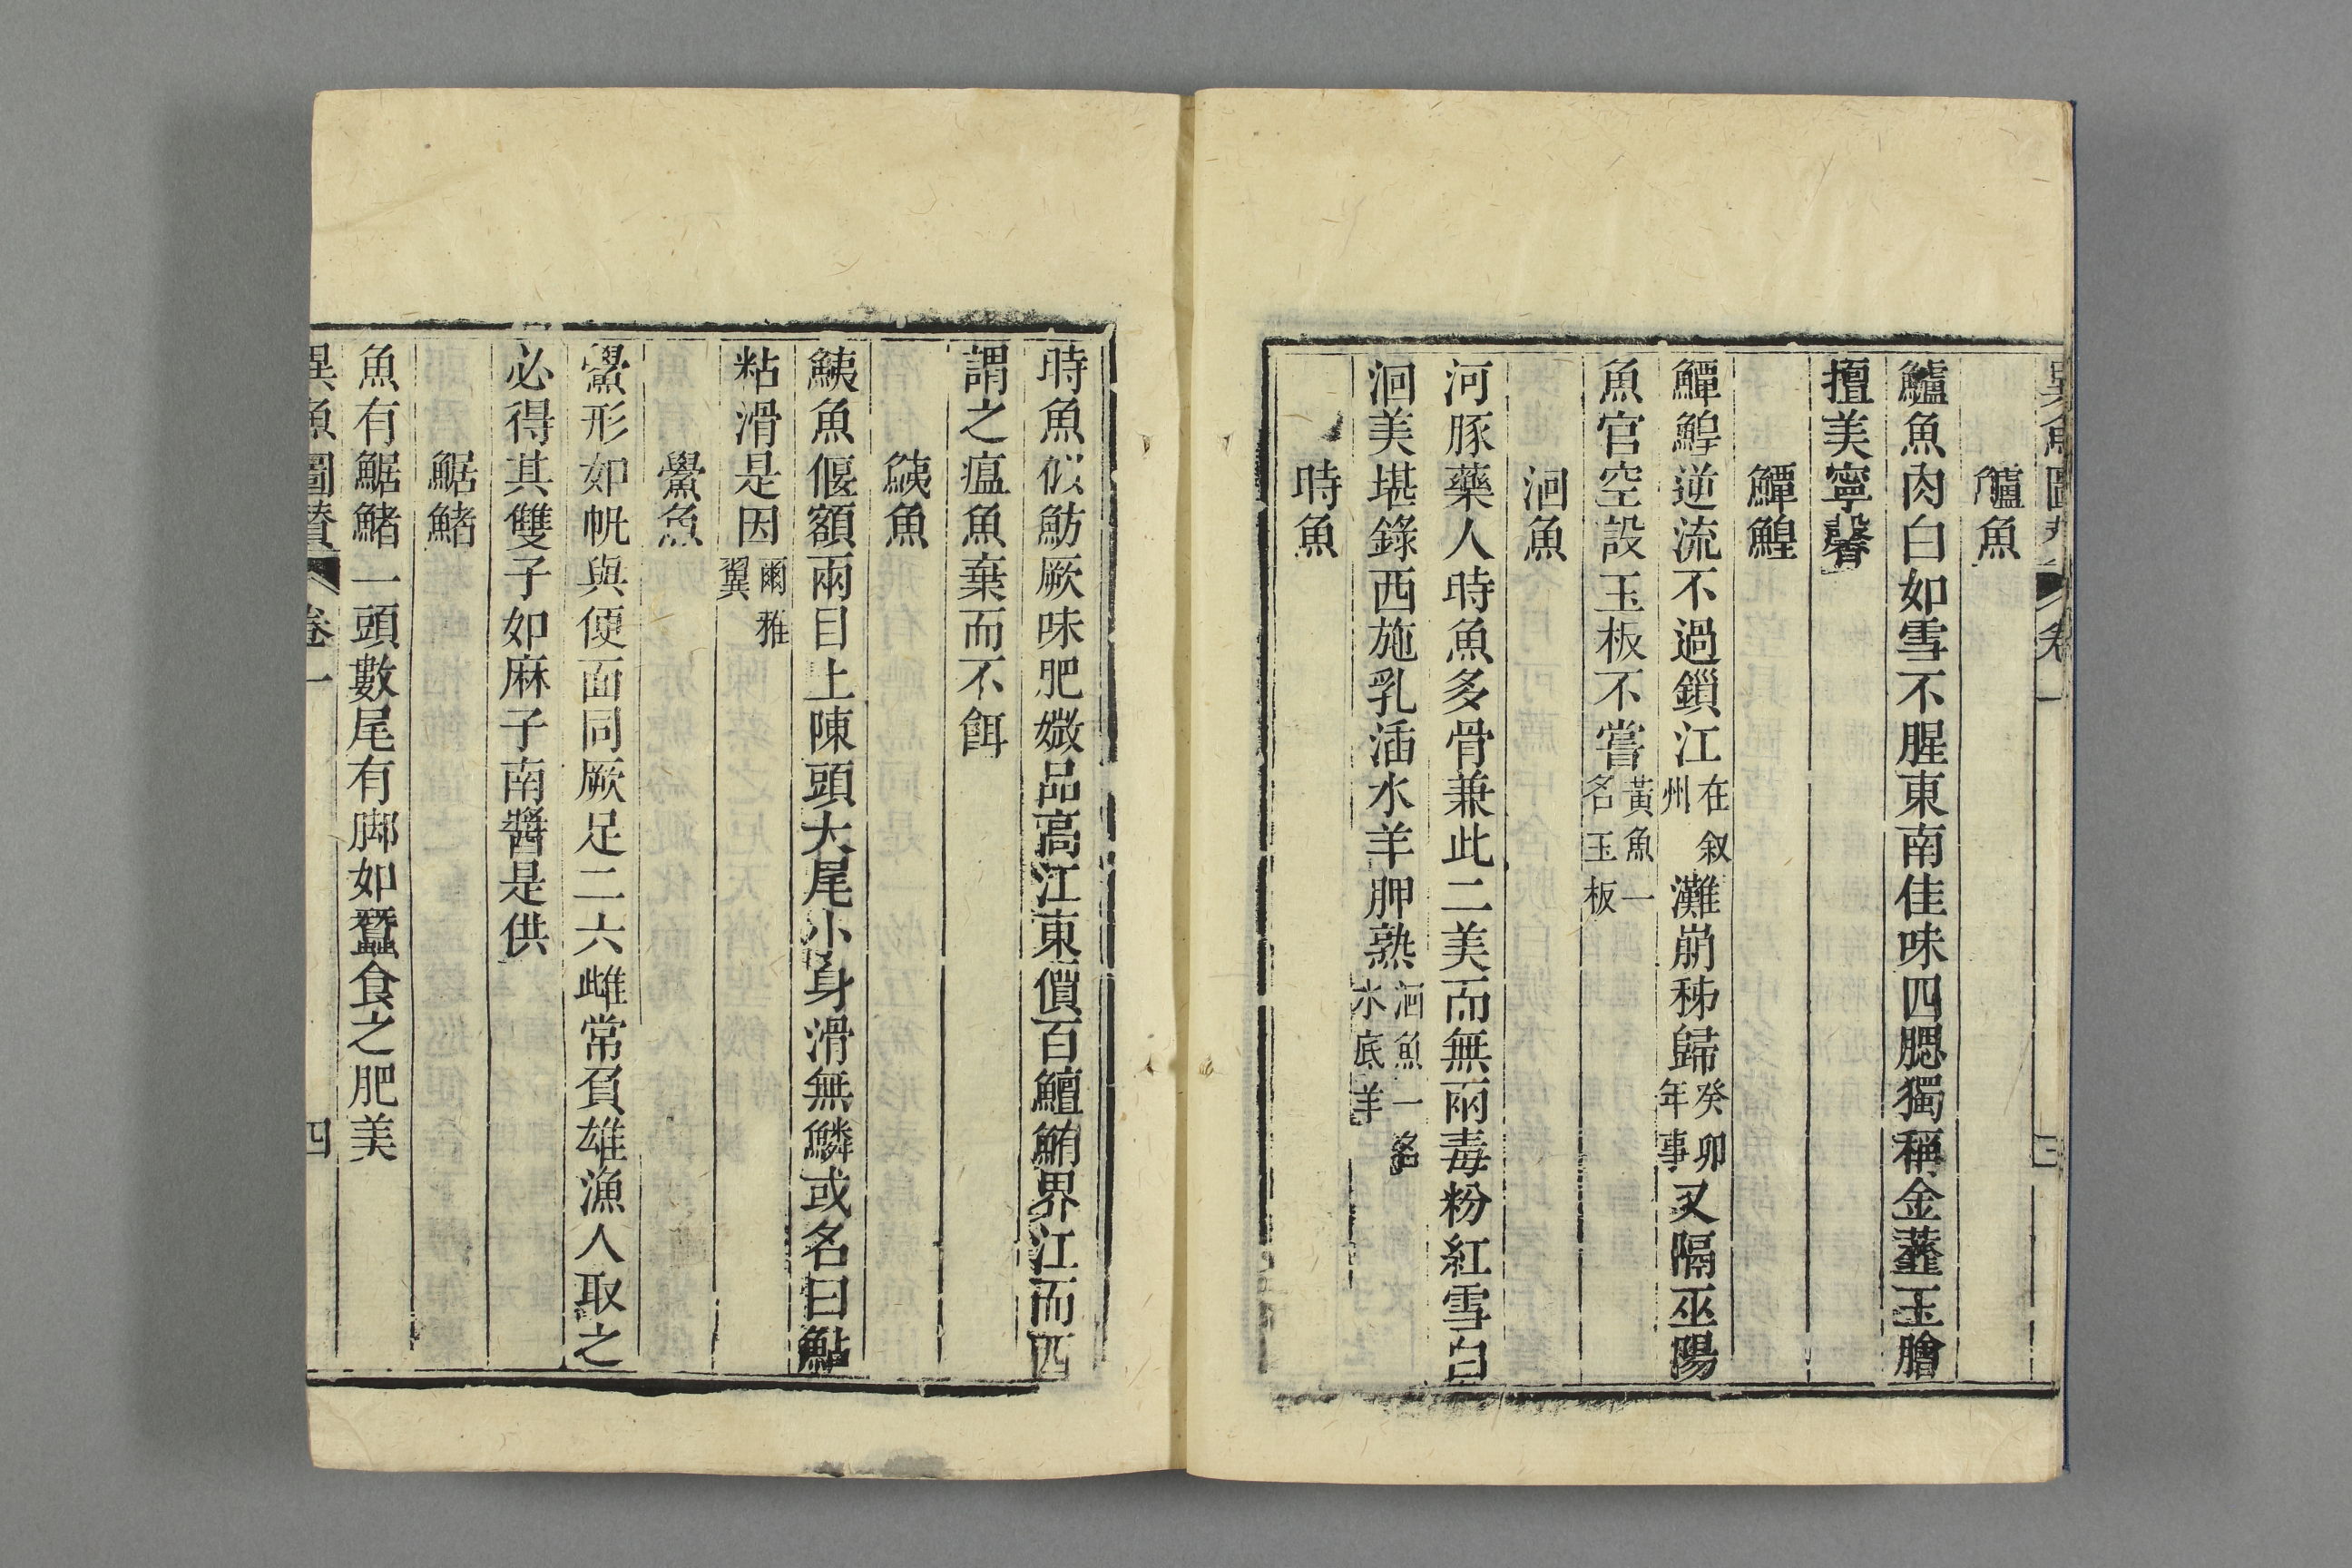 異魚圖贊 卷一 三
鱸魚
鱸魚肉白如雪不腥東南佳味四腮獨稱金虀玉膾
擅美寧馨
鱏鰉
鱏鰉逆流不過鎖江在叙州灘崩秭歸癸卯年事又隔巫陽
魚官空設玉板不嘗黃魚一名玉板
洄魚
河豚藥人時魚多骨兼此二美而無兩毒粉紅雪白
洄美堪錄西施乳湎水羊胛熟洄魚一名水底羊
時魚
時魚似魴厥味肥媺品高江東價百鱣鮪界江而西
謂之瘟魚棄而不餌
鮧魚
鮧魚偃額兩目上陳頭大尾小身滑無鱗或名曰鮎
粘滑是因爾雅翼
鱟魚
鱟形如帆與便面同厥足二六雌常負雄漁人取之
必得其雙子如麻子南醬是供
鯣鰭
魚有鯣鰭一頭數尾有脚如蠶食之肥美
異魚圖贊 卷一 四